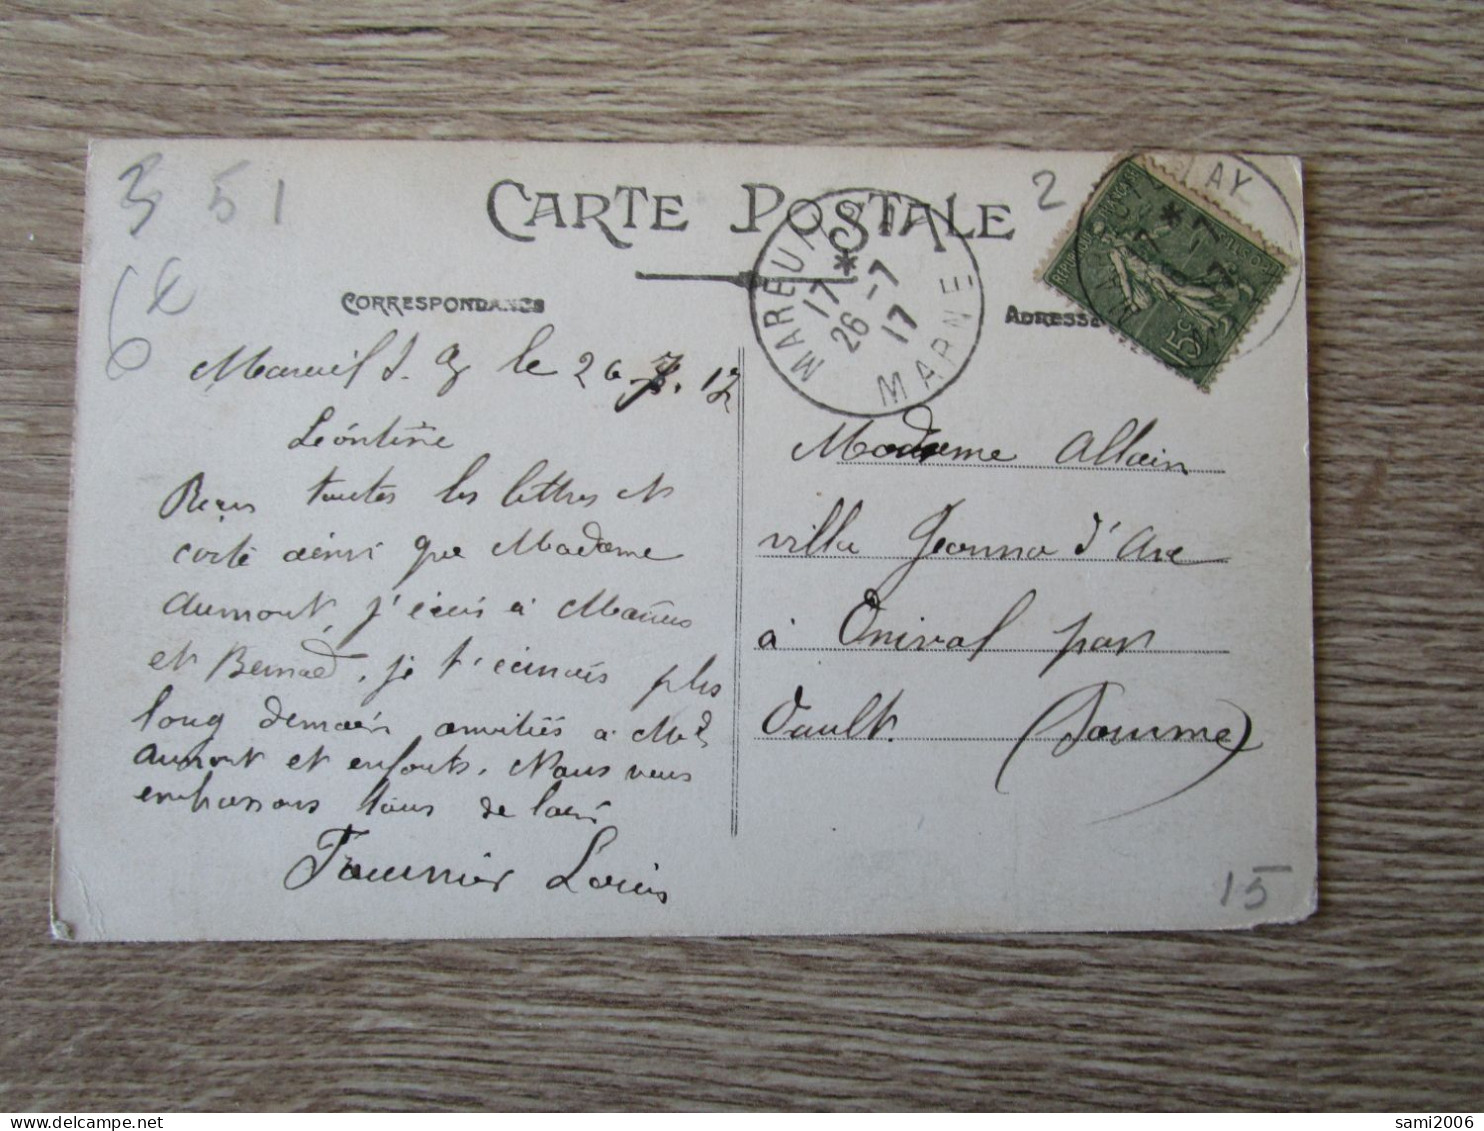 3 51
6€
2
CARTE POSTALE
CORRESPONDANCE
ADRESSE
MAREUIL AY
17 *
26 -7
17
MARNE
15c
Mareuil s. Ay le 26.7.17
Léontine
Reçu toutes les lettres et
carte ainsi que Madame
Aumont, j'écris à
et Bernard, je t'écrirais plus
long demain amitiés à Md
Aumont et enfants. Nous vous
embrassons tous de loin
Fournier Louis
Madame Allain
villa Jeanne d'Arc
à Onival par
Ault. (Somme)
15
sami2006